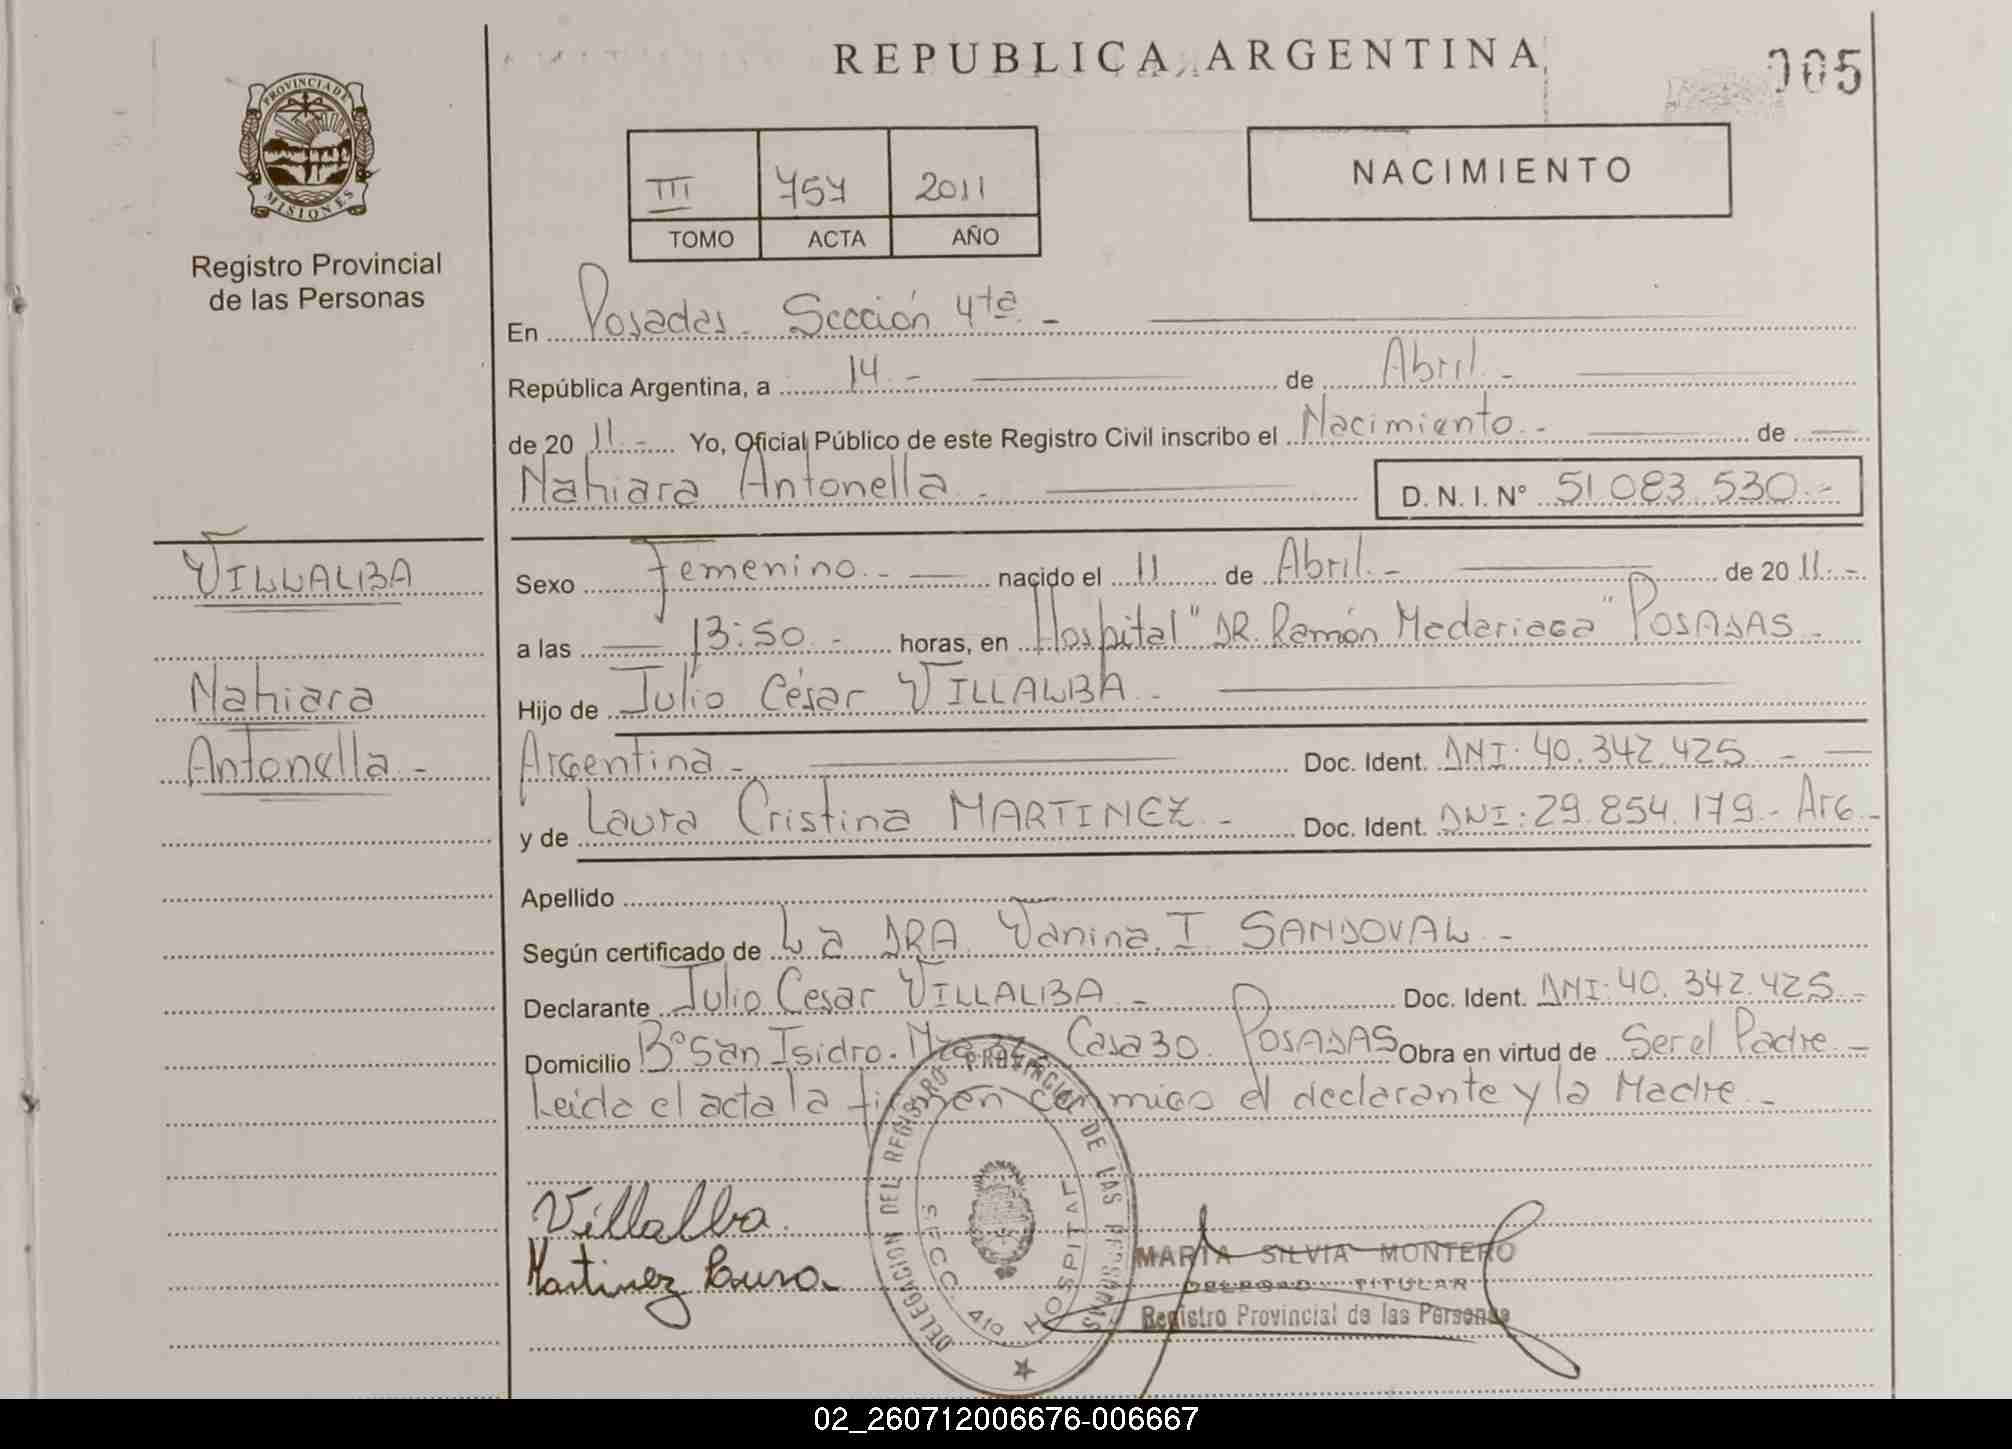 REPUBLICA ARGENTINA
005
PROVINCIA DE
MISIONES
Registro Provincial
de las Personas
III 757 2011
TOMO ACTA AÑO
NACIMIENTO
En Posadas. Sección 4ta. -
República Argentina, a 14. - de Abril. -
de 20 11. - Yo, Oficial Público de este Registro Civil inscribo el Nacimiento. - de
Nahiara Antonella. - D. N. I. N° 51.083.530. -
VILLALBA
Nahiara
Antonella. -
Sexo Femenino. - nacido el 11 de Abril. - de 20 11. -
a las 13:50. - horas, en Hospital "DR. Ramón Madariaga" POSADAS. -
Hijo de Julio César VILLALBA. -
Argentina. - Doc. Ident. DNI: 40.342.425. -
y de Laura Cristina MARTINEZ. - Doc. Ident. DNI: 29.854.179. - Arg. -
Apellido
Según certificado de La DRA. Vanina. I. SANDOVAL. -
Declarante Julio Cesar VILLALBA. - Doc. Ident. DNI: 40.342.425. -
Domicilio B° San Isidro. Mza Casa 30. POSADAS Obra en virtud de Ser el Padre. -
Leida el acta la firman conmigo el declarante y la Madre. -
Villalba.
Martinez Laura
DELEGACION DEL REGISTRO PROVINCIAL DE LAS PERSONAS
SECC. 4ta HOSPITAL
MARIA SILVIA MONTERO
DELEGADO TITULAR
Registro Provincial de las Personas
02_260712006676-006667